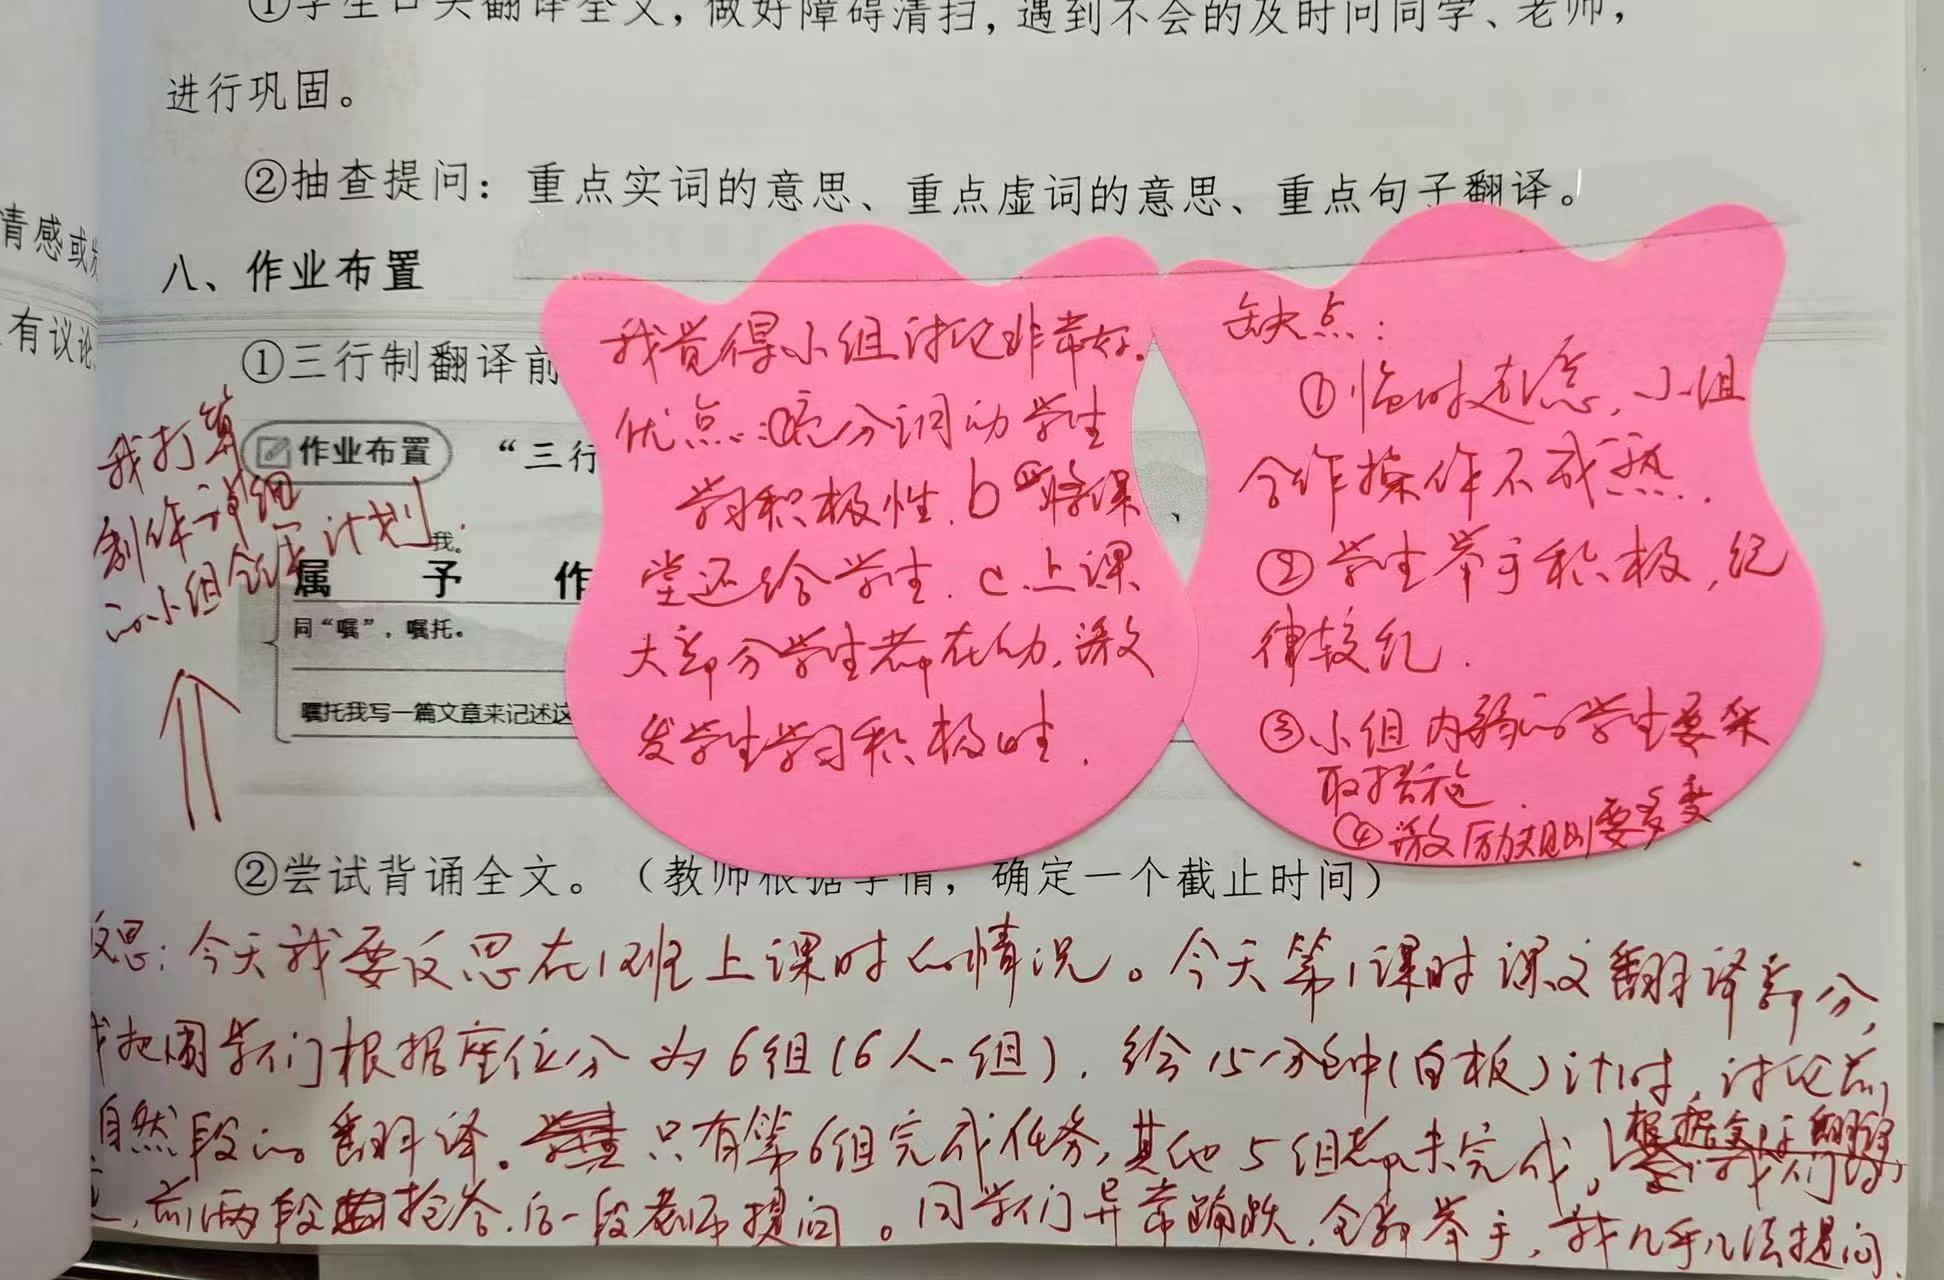 ①学生口头翻译全文，做好障碍清扫，遇到不会的及时问同学、老师，
进行巩固。
②抽查提问：重点实词的意思、重点虚词的意思、重点句子翻译。
情感或
八、作业布置
有议论
①三行制翻译前
作业布置 “三行
我。
属 予 作
同“嘱”，嘱托。
嘱托我写一篇文章来记述这
我打算
制作详细
的小组合作计划.
我觉得小组讨论非常好.
优点:①充分调动学生
学习积极性. b 将课
堂还给学生. c.上课
大部分学生都在动,激
发学生学习积极性.
缺点:
①临时起意,小组
合作操作不成熟.
②学生举手积极,纪
律较乱.
③小组内弱的学生要采
取措施.
④激励规则要多变
②尝试背诵全文。（教师根据学情，确定一个截止时间）
反思:今天我要反思在12班上课时的情况。今天第1课时课文翻译部分,
我把同学们根据座位分为6组(6人一组),给15分钟(白板)计时,讨论前
自然段的翻译。只有第6组完成任务,其他5组都未完成,
前两段抢答,后一段老师提问。同学们异常踊跃,全都举手,我几乎没法提问,